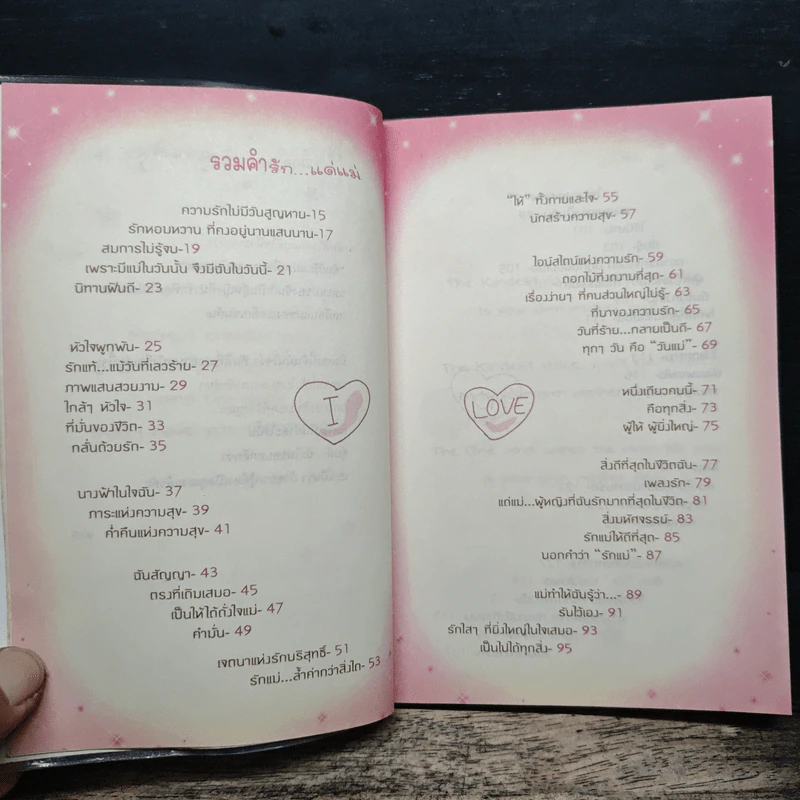 รวมคำรัก...แด่แม่
ความรักไม่มีวันสูญหาย-15
รักหอมหวาน ที่คงอยู่นานแสนนาน-17
สมการไม่รู้จบ-19
เพราะมีแม่ในวันนั้น จึงมีฉันในวันนี้- 21
นิทานฝันดี- 23
หัวใจผูกพัน- 25
รักแท้...แม้วันที่เลวร้าย- 27
ภาพแสนสวยงาม- 29
ใกล้ๆ หัวใจ- 31
ที่มั่นของชีวิต- 33
กลั่นด้วยรัก- 35
I
นางฟ้าในใจฉัน- 37
ภาระแห่งความสุข- 39
ค่ำคืนแห่งความสุข- 41
ฉันสัญญา- 43
ตรงที่เดิมเสมอ- 45
เป็นให้ได้ดั่งใจแม่- 47
คำมั่น- 49
เจตนาแห่งรักบริสุทธิ์- 51
รักแม่...ล้ำค่ากว่าสิ่งใด- 53
"ให้" ทั้งกายและใจ- 55
นักสร้างความสุข- 57
ไอน์สไตน์แห่งความรัก- 59
ดอกไม้ที่งดงามที่สุด- 61
เรื่องง่ายๆ ที่คนส่วนใหญ่ไม่รู้- 63
ที่มาของความรัก- 65
วันที่ร้าย...กลายเป็นดี- 67
ทุกๆ วัน คือ "วันแม่"- 69
LOVE
หนึ่งเดียวคนนี้- 71
คือทุกสิ่ง- 73
ผู้ให้ ผู้ยิ่งใหญ่- 75
สิ่งดีที่สุดในชีวิตฉัน- 77
เพลงรัก- 79
แด่แม่...ผู้หญิงที่ฉันรักมากที่สุดในชีวิต- 81
สิ่งมหัศจรรย์- 83
รักแม่ให้ดีที่สุด- 85
บอกคำว่า "รักแม่"- 87
แม่ทำให้ฉันรู้ว่า...- 89
รับไว้เอง- 91
รักใสๆ ที่ยิ่งใหญ่ในใจเสมอ- 93
เป็นไปได้ทุกสิ่ง- 95